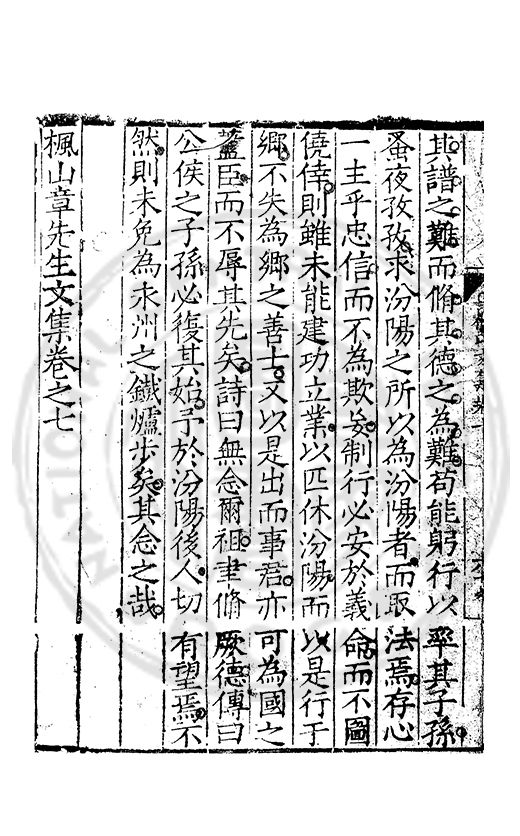 其譜之難而脩其德之為難苟能躬行以率其子孫
蚤夜孜孜求汾陽之所以為汾陽者而取法焉存心
一主乎忠信而不為欺妄制行必安於義命而不圖
僥倖則雖未能建功立業以匹休汾陽而以是行于
鄉不失為鄉之善士又以是出而事君亦可為國之
藎臣而不辱其先矣詩曰無念爾祖聿脩厥德傳曰
公侯之子孫必復其始予於汾陽後人切有望焉不
然則未免為永州之鐵爐步矣其念之哉
楓山章先生文集卷之七